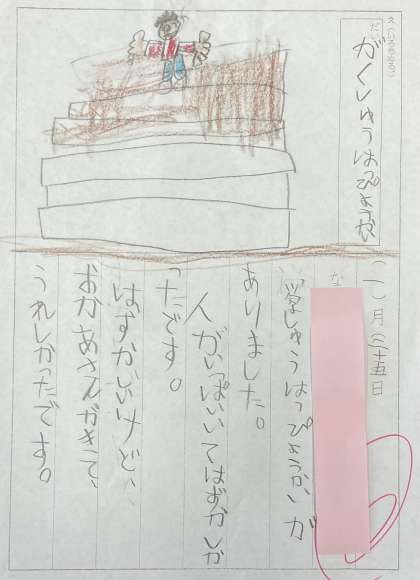 えにっきをかこう
だい
がくしゅうはっぴょうかい
(一)月(二十五日
な
学しゅうはっぴょうかいが
ありました。
人がいっぱいいてはずかしか
ったです。
はずかしいけど、
おかあさんがきて、
うれしかったです。